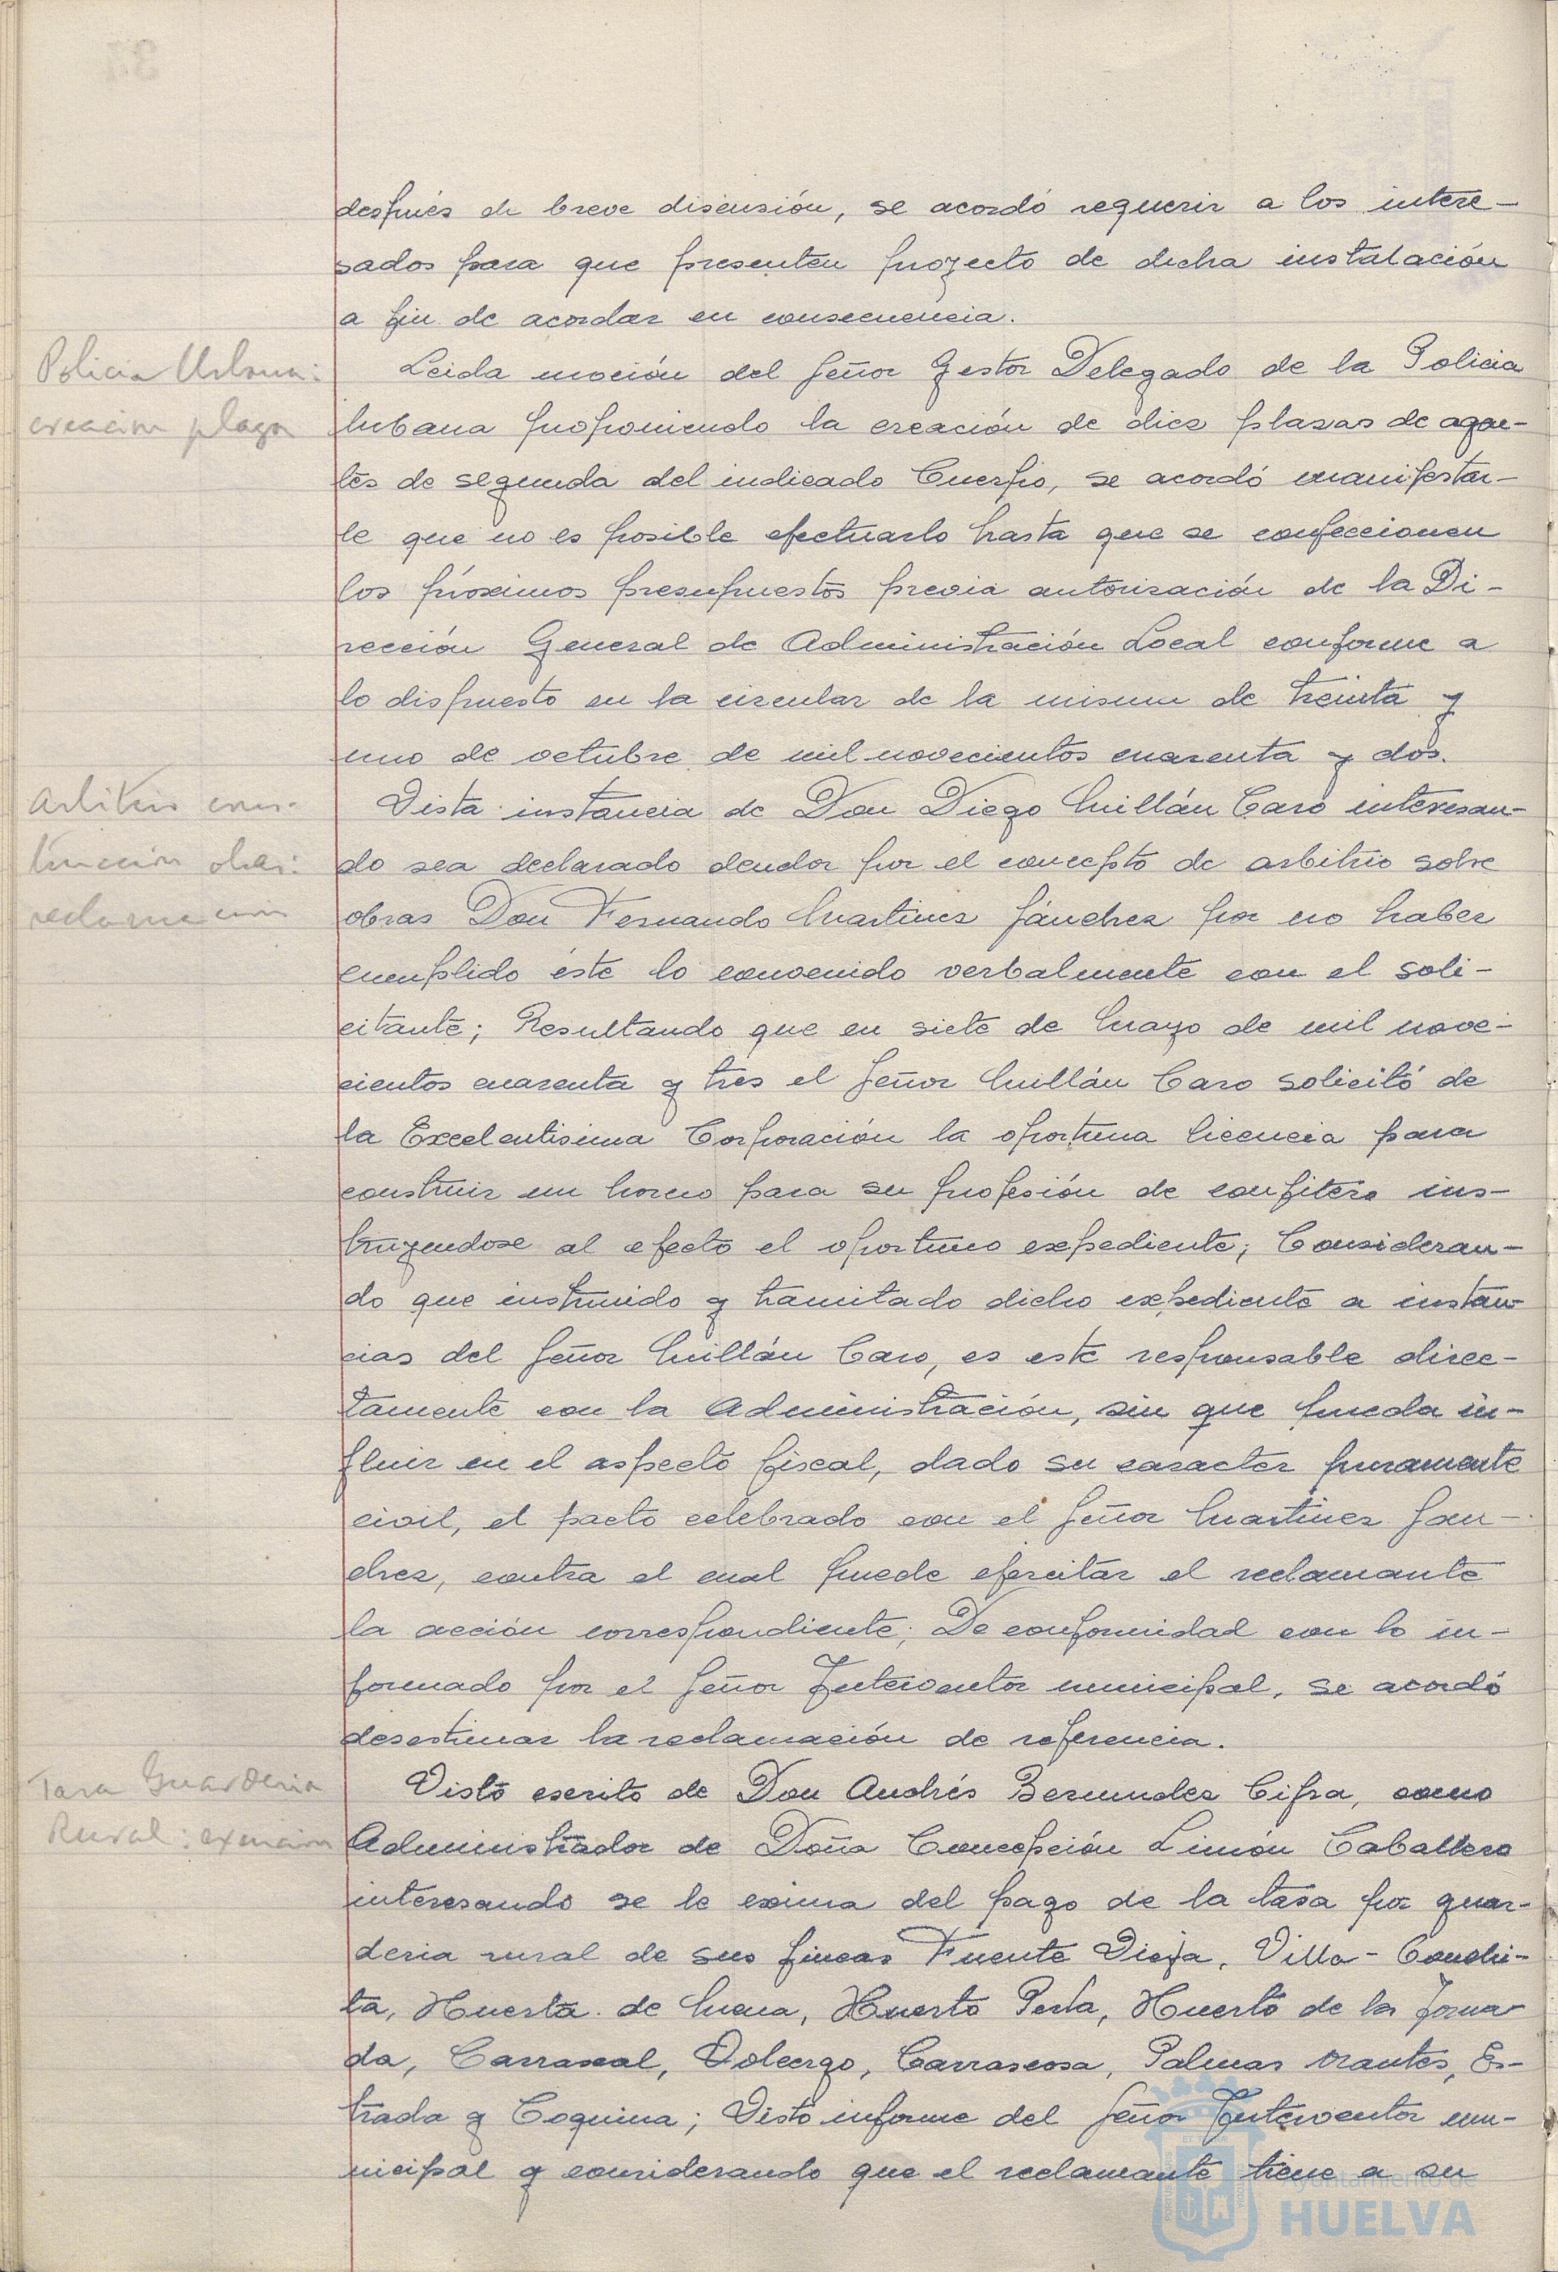 después de breve discusión, se acordó requerir a los intere-
sados para que presenten proyecto de dicha instalación
a fin de acordar en consecuencia.
Policia Urbana:
creacion plazas
Leida moción del Señor Gestor Delegado de la Policia
Urbana proponiendo la creación de diez plazas de agen-
tes de segunda del indicado Cuerpo, se acordó manifestar-
le que no es posible efectuarlo hasta que se confeccionen
los próximos presupuestos previa autorización de la Di-
rección General de Administración Local conforme a
lo dispuesto en la circular de la misma de treinta y
uno de octubre de mil novecientos cuarenta y dos.
Arbitrio cons-
trucción obras:
reclamacion
Vista instancia de Don Diego Millán Caro interesan-
do sea declarado deudor por el concepto de arbitrio sobre
obras Don Fernando Martinez Sánchez por no haber
cumplido éste lo convenido verbalmente con el soli-
citante; Resultando que en siete de Mayo de mil nove-
cientos cuarenta y tres el Señor Millán Caro solicitó de
la Excelentisima Corporación la oportuna licencia para
construir un horno para su profesión de confitero ins-
truyendose al efecto el oportuno expediente; Consideran-
do que instruido y tramitado dicho expediente a instan-
cias del Señor Millán Caro, es este responsable direc-
tamente con la Administración, sin que pueda in-
fluir en el aspecto fiscal, dado su caracter puramente
civil, el pacto celebrado con el Señor Martinez San-
chez, contra el cual puede ejercitar el reclamante
la acción correspondiente; De conformidad con lo in-
formado por el Señor Interventor municipal, se acordó
desestimar la reclamación de referencia.
Tasa Guarderia
Rural: exencion
Visto escrito de Don Andrés Bermudez Cifra, como
Administrador de Doña Concepción Limón Caballero
interesando se le exima del pago de la tasa por guar-
deria rural de sus fincas Fuente Vieja, Villa-Conchi-
ta, Huerta de Mena, Huerto Perla, Huerto de la
da, Carrascal, Carrascosa, Palmar Es-
trada y Coquina; Visto informe del Señor Interventor mu-
nicipal y considerando que el reclamante tiene a su
Ayuntamiento de
HUELVA